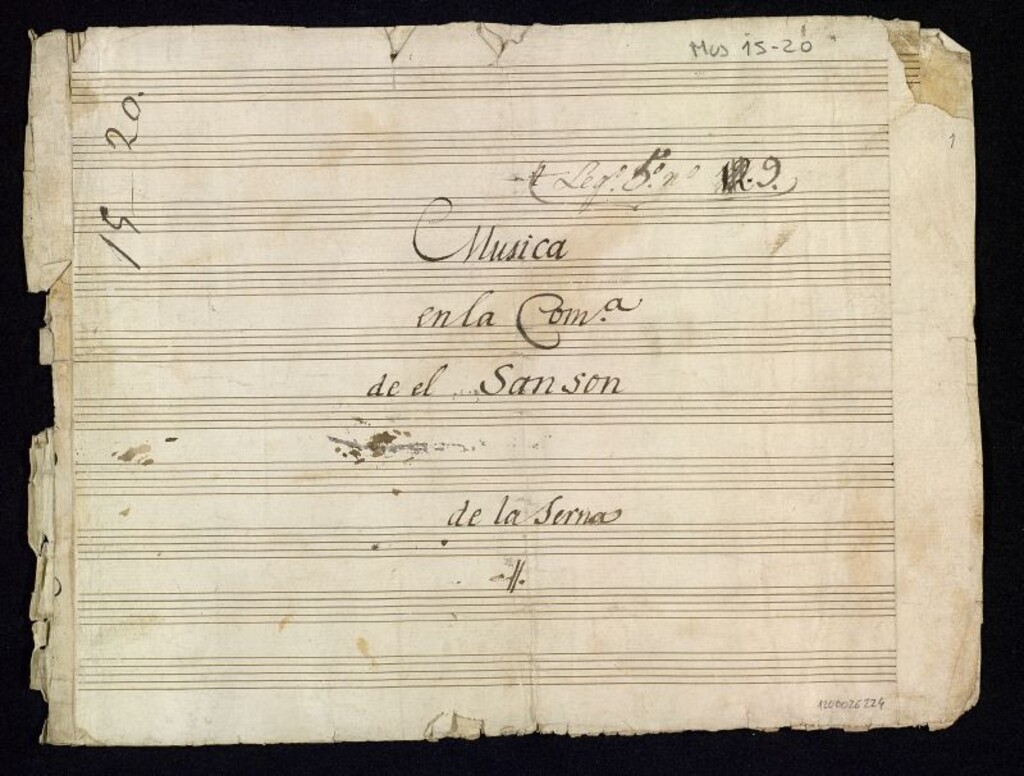 Mus 15-20
15-20.
1
Leg.º 5.º n.º 9.
Musica
en la Com.ª
de el Sanson
de la Serna
1200026224